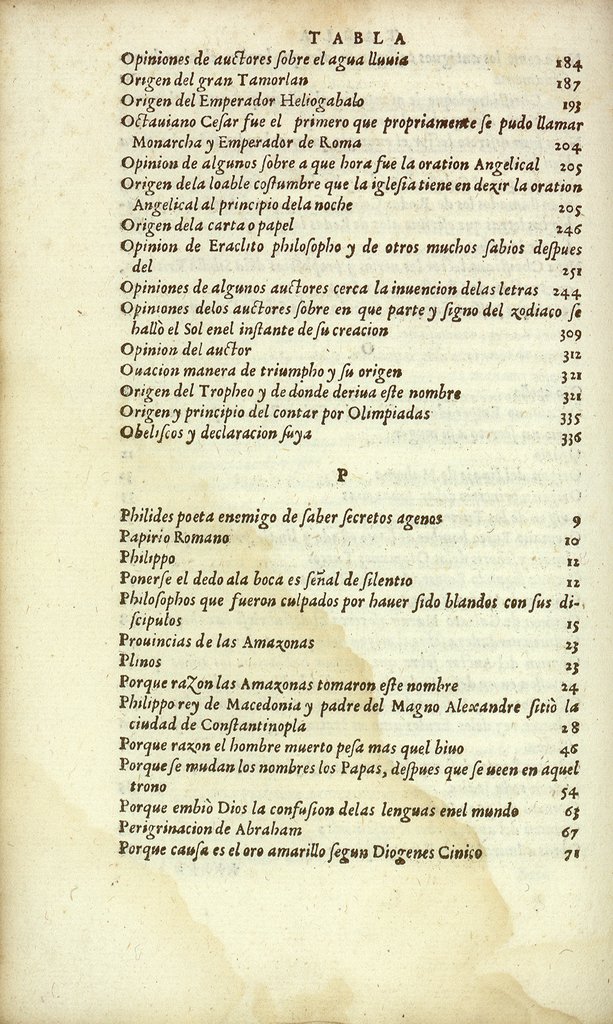 TABLA
Opiniones de auctores ſobre el agua lluuia 184
Origen del gran Tamorlan 187
Origen del Emperador Heliogabalo 193
Octauiano Ceſar fue el primero que propriamente ſe pudo llamar
Monarcha y Emperador de Roma 204
Opinion de algunos ſobre a que hora fue la oration Angelical 205
Origen dela loable coſtumbre que la igleſia tiene en dezir la oration
Angelical al principio dela noche 205
Origen dela carta o papel 246
Opinion de Eraclito philoſopho y de otros muchos ſabios deſpues
del 251
Opiniones de algunos auctores cerca la inuencion delas letras 244
Opiniones delos auctores ſobre en que parte y ſigno del zodiaco ſe
hallò el Sol enel inſtante de ſu creacion 309
Opinion del auctor 312
Ouacion manera de triumpho y ſu origen 321
Origen del Tropheo y de donde deriua eſte nombre 321
Origen y principio del contar por Olimpiadas 335
Obeliſcos y declaracion ſuya 336
P
Philides poeta enemigo de ſaber ſecretos agenos 9
Papirio Romano 10
Philippo 12
Ponerſe el dedo ala boca es ſeñal de ſilentio 12
Philoſophos que fueron culpados por hauer ſido blandos con ſus di-
ſcipulos 15
Prouincias de las Amazonas 23
Plinos 23
Porque razon las Amazonas tomaron eſte nombre 24
Philippo rey de Macedonia y padre del Magno Alexandre ſitiò la
ciudad de Conſtantinopla 28
Porque razon el hombre muerto peſa mas quel biuo 46
Porque ſe mudan los nombres los Papas, deſpues que ſe ueen en aquel
trono 54
Porque embiò Dios la confuſion delas lenguas enel mundo 63
Perigrinacion de Abraham 67
Porque cauſa es el oro amarillo ſegun Diogenes Cinico 71